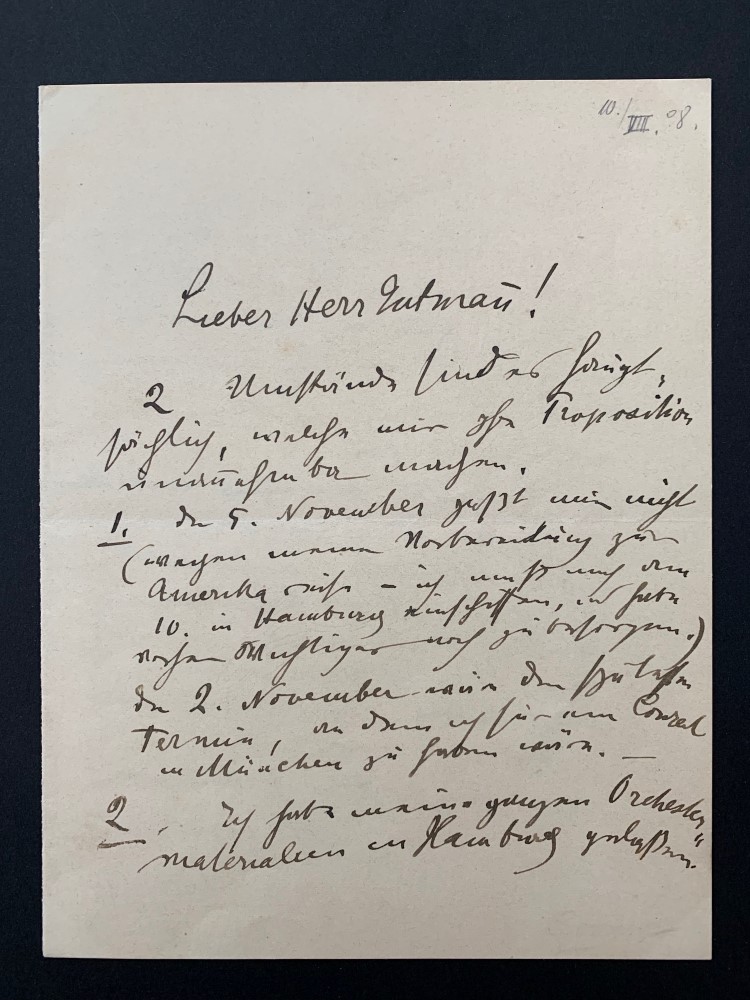 10./VIII. 08.
Lieber Herr Gutmañ!
2 Umstände sind es haupt-
sächlich, welche mir Ihre Proposition
unañehmbar machen.
1. Der 5. November paßt mir nicht
(wegen meiner Vorbereitung zur
Amerika reise – ich muß mich den
10. in Hamburg einschiffen, und habe
vorher Wichtiges noch zu besorgen.)
Der 2. November wäre der späteste
Termin, an dem ich für ein Concert
in München zu haben wäre. —
2. Ich habe meine ganzen Orchester"
materialien in Hamburg gelaßen.